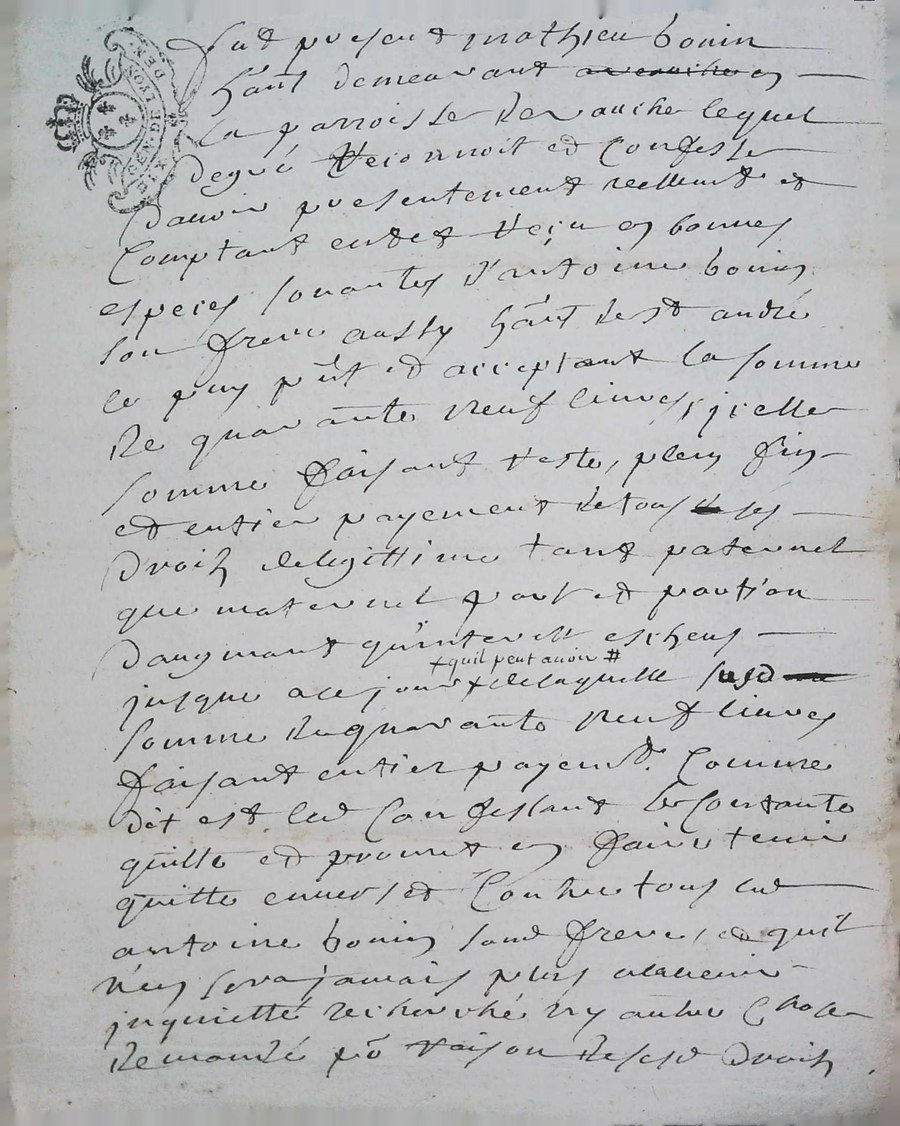 Fut present mathieu bonin
hãnt demeurant a veauche en
la parroisse de veauche lequel
de gré Reconnoit et Confesse
d'avoir presentement reellemt et
Comptant eu et reçu en bonnes
especes sonantes d'antoine bonin
son frere aussy hãnt de st andré
le puy pñt et acceptant la somme
de quarante neuf livres, jcelle
somme faisant reste, plein fin
et entier payement de tous ses
droits de legittime tant paternel
que maternel part et portion
daugmant qu'interest escheus
+ quil peut avoir #
jusque a ce jour + de laquelle susd
somme de quarante neuf livres
faisant entier payemt. Comme
dit est led Confessant se contante
quitte et promet en faire tenir
quitte envers et Contre tous led
antoine bonin sond frere, et quil
n'en sera jamais plus a l'avenir
jnquietté recherché ny autre Chose
demandé pr raison de sesd droits
GEN. LYON